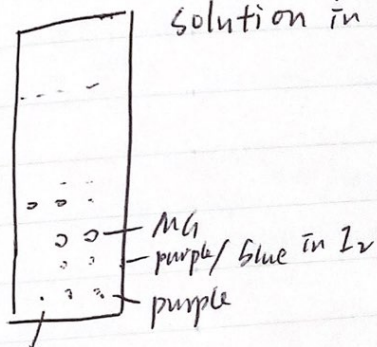 solution in
MG
purple/ blue in I₂
purple